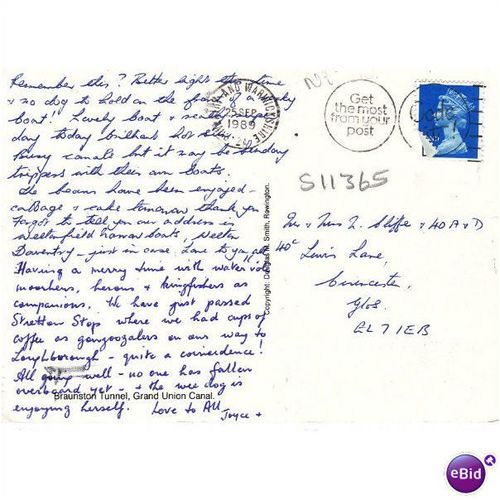 Remember this? Better light this time
& no dog to hold on the front of a
boat! Lovely boat &
day today brilliant hot sun.
Busy canals but it may be Sunday
trippers with their own boats.
The beans have been enjoyed -
cabbage & cake tomorrow thank you
Forgot to tell you our address is
Weltonfield Narrowboats, Welton
Daventry - just in case. Love to you all
Having a merry time with water vole
moorhens, herons & kingfishers as
companions. We have just passed
Stretton Stop where we had cups of
coffee as gongoozlers on our way to
Loughborough - quite a coincidence!
All going well - no one has fallen
overboard yet - & the wee dog is
enjoying herself. Love to All
Joyce
Braunston Tunnel, Grand Union Canal.
Copyright: Douglas M. Smith, Rowington.
AND WARWICKSHIRE
25 SEP
1989
Get
the most
from your
post
S11365
Mr & Mrs
40 Lewis Lane,
Cirencester,
Glos
GL7 1EB
eBid